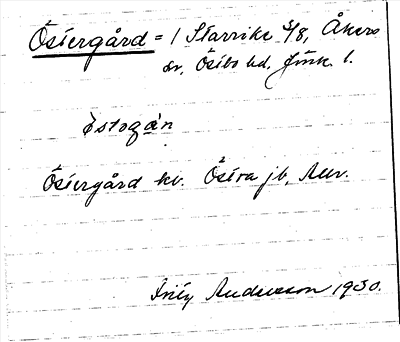 Östergård = 1 Starrike 5/8, Åkers
sn, Östbo hd, Jönk. l.
östogån
Östergård kv. Östra jb, Auv.
Andersson 1930.